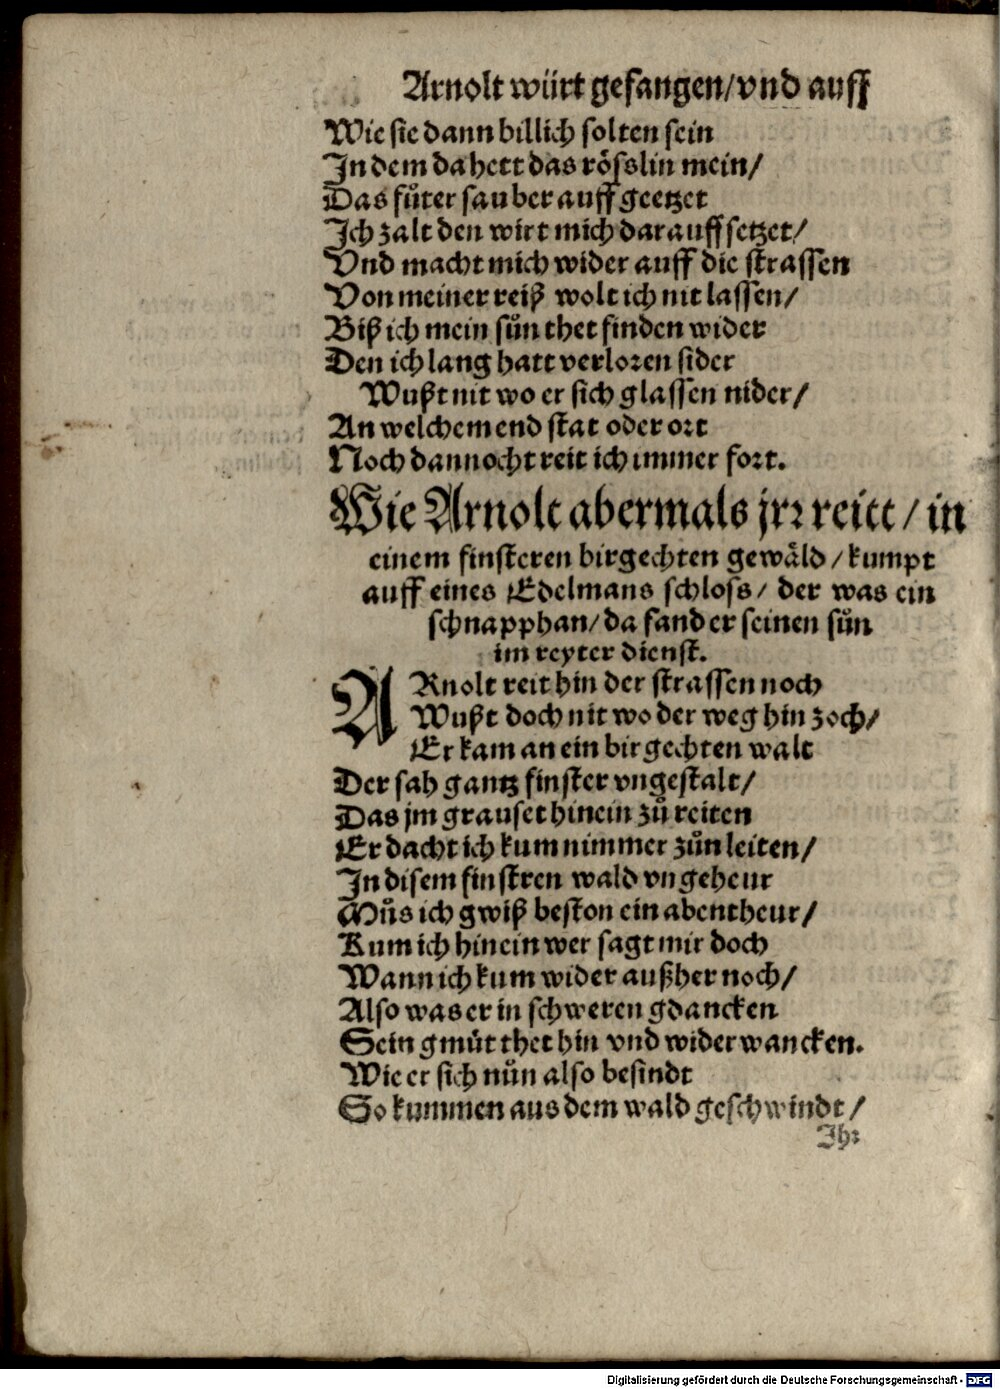 Arnolt würt gefangen/vnd auff
Wie sie dann billich solten sein
In dem da hett das rösslin mein/
Das fůter sauber auff geetzet
Ich zalt den wirt mich darauff setzet/
Vnd macht mich wider auff die strassen
Von meiner reiß wolt ich nit lassen/
Biß ich mein sůn thet finden wider
Den ich lang hatt verloren sider
Wußt nit wo er sich glassen nider/
An welchem end stat oder ort
Noch dannocht reit ich immer fort.
Wie Arnolt abermals jrr reitt/ in
einem finsteren birgechten gewäld/kumpt
auff eines Edelmans schloss/ der was ein
schnapphan/da fand er seinen sůn
im reyter dienst.
ARnolt reit hin der strassen noch
Wußt doch nit wo der weg hin zoch/
Er kam an ein birgechten walt
Der sah gantz finster vngestalt/
Das jm grauset hinein zů reiten
Er dacht ich kum nimmer zůn leiten/
In disem finstren wald vngeheur
Můs ich gwiß beston ein abentheur/
Kum ich hinein wer sagt mir doch
Wann ich kum wider außher noch/
Also was er in schweren gdancken
Sein gmüt thet hin vnd wider wancken.
Wie er sich nůn also besindt
So kummen aus dem wald geschwindt/
Ihr
Digitalisierung gefördert durch die Deutsche Forschungsgemeinschaft - DFG